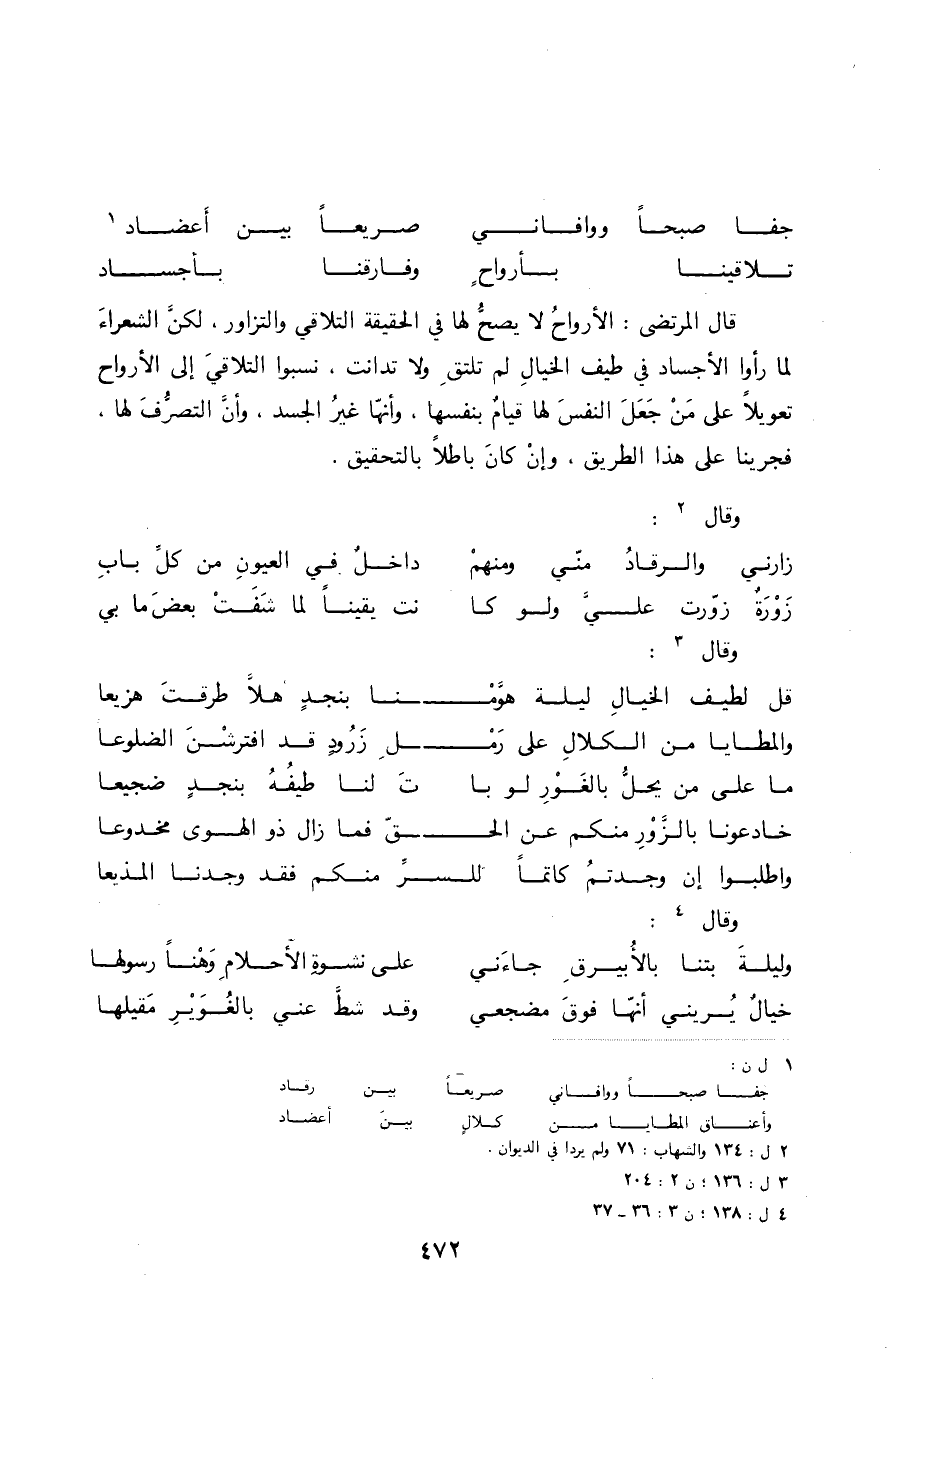 جفا صبحاً ووافاني صريعاً بين أعضاد ١
تلاقينا بأرواحٍ وفارقنا بأجساد
قال المرتضى : الأرواحُ لا يصحُّ لها في الحقيقة التلاقي والتزاور ، لكنَّ الشعراءَ
لما رأوا الأجساد في طيف الخيالِ لم تلتقِ ولا تدانت ، نسبوا التلاقيَ إلى الأرواح
تعويلاً على مَنْ جَعَلَ النفسَ لها قيامٌ بنفسها ، وأنّها غيرُ الجسد ، وأنَّ التصرُّفَ لها ،
فجرينا على هذا الطريق ، وإنْ كانَ باطلاً بالتحقيق .
وقال ٢ :
زارني والرقادُ منّي ومنهمْ داخلٌ في العيونِ من كلِّ بابِ
زَوْرَةٌ زوّرت عليَّ ولو كا نت يقيناً لما شَفَتْ بعضَ ما بي
وقال ٣ :
قل لطيف الخيالِ ليلة هوَّمْـنا بنجدٍ هلاَّ طرقتَ هزيعا
والمطايا من الكلالِ على رَمْـلِ زَرُودٍ قد افترشْنَ الضلوعا
ما على من يحلُّ بالغَوْرِ لو با تَ لنا طيفُهُ بنجدٍ ضجيعا
خادعونا بالزَّوْرِ منكم عن الحـقّ فما زال ذو الهوى مخدوعا
واطلبوا إن وجدتمُ كاتماً للسرِّ منكم فقد وجدنا المذيعا
وقال ٤ :
وليلةَ بتنا بالأُبيرقِ جاءَني على نشوةِ الأحلامِ وَهْناً رسولها
خيالٌ يُريني أنّها فوقَ مضجعي وقد شطَّ عني بالغُوَيْرِ مَقيلها
١ ل ن :
جفا صبحاً ووافاني صريعاً بين رقاد
وأعناق المطايا من كلالٍ بينَ أعضاد
٢ ل : ١٣٤ والشهاب : ٧١ ولم يردا في الديوان .
٣ ل : ١٣٦ ؛ ن ٢ : ٢٠٤
٤ ل : ١٣٨ ؛ ن ٣ : ٣٦ - ٣٧
٤٧٢